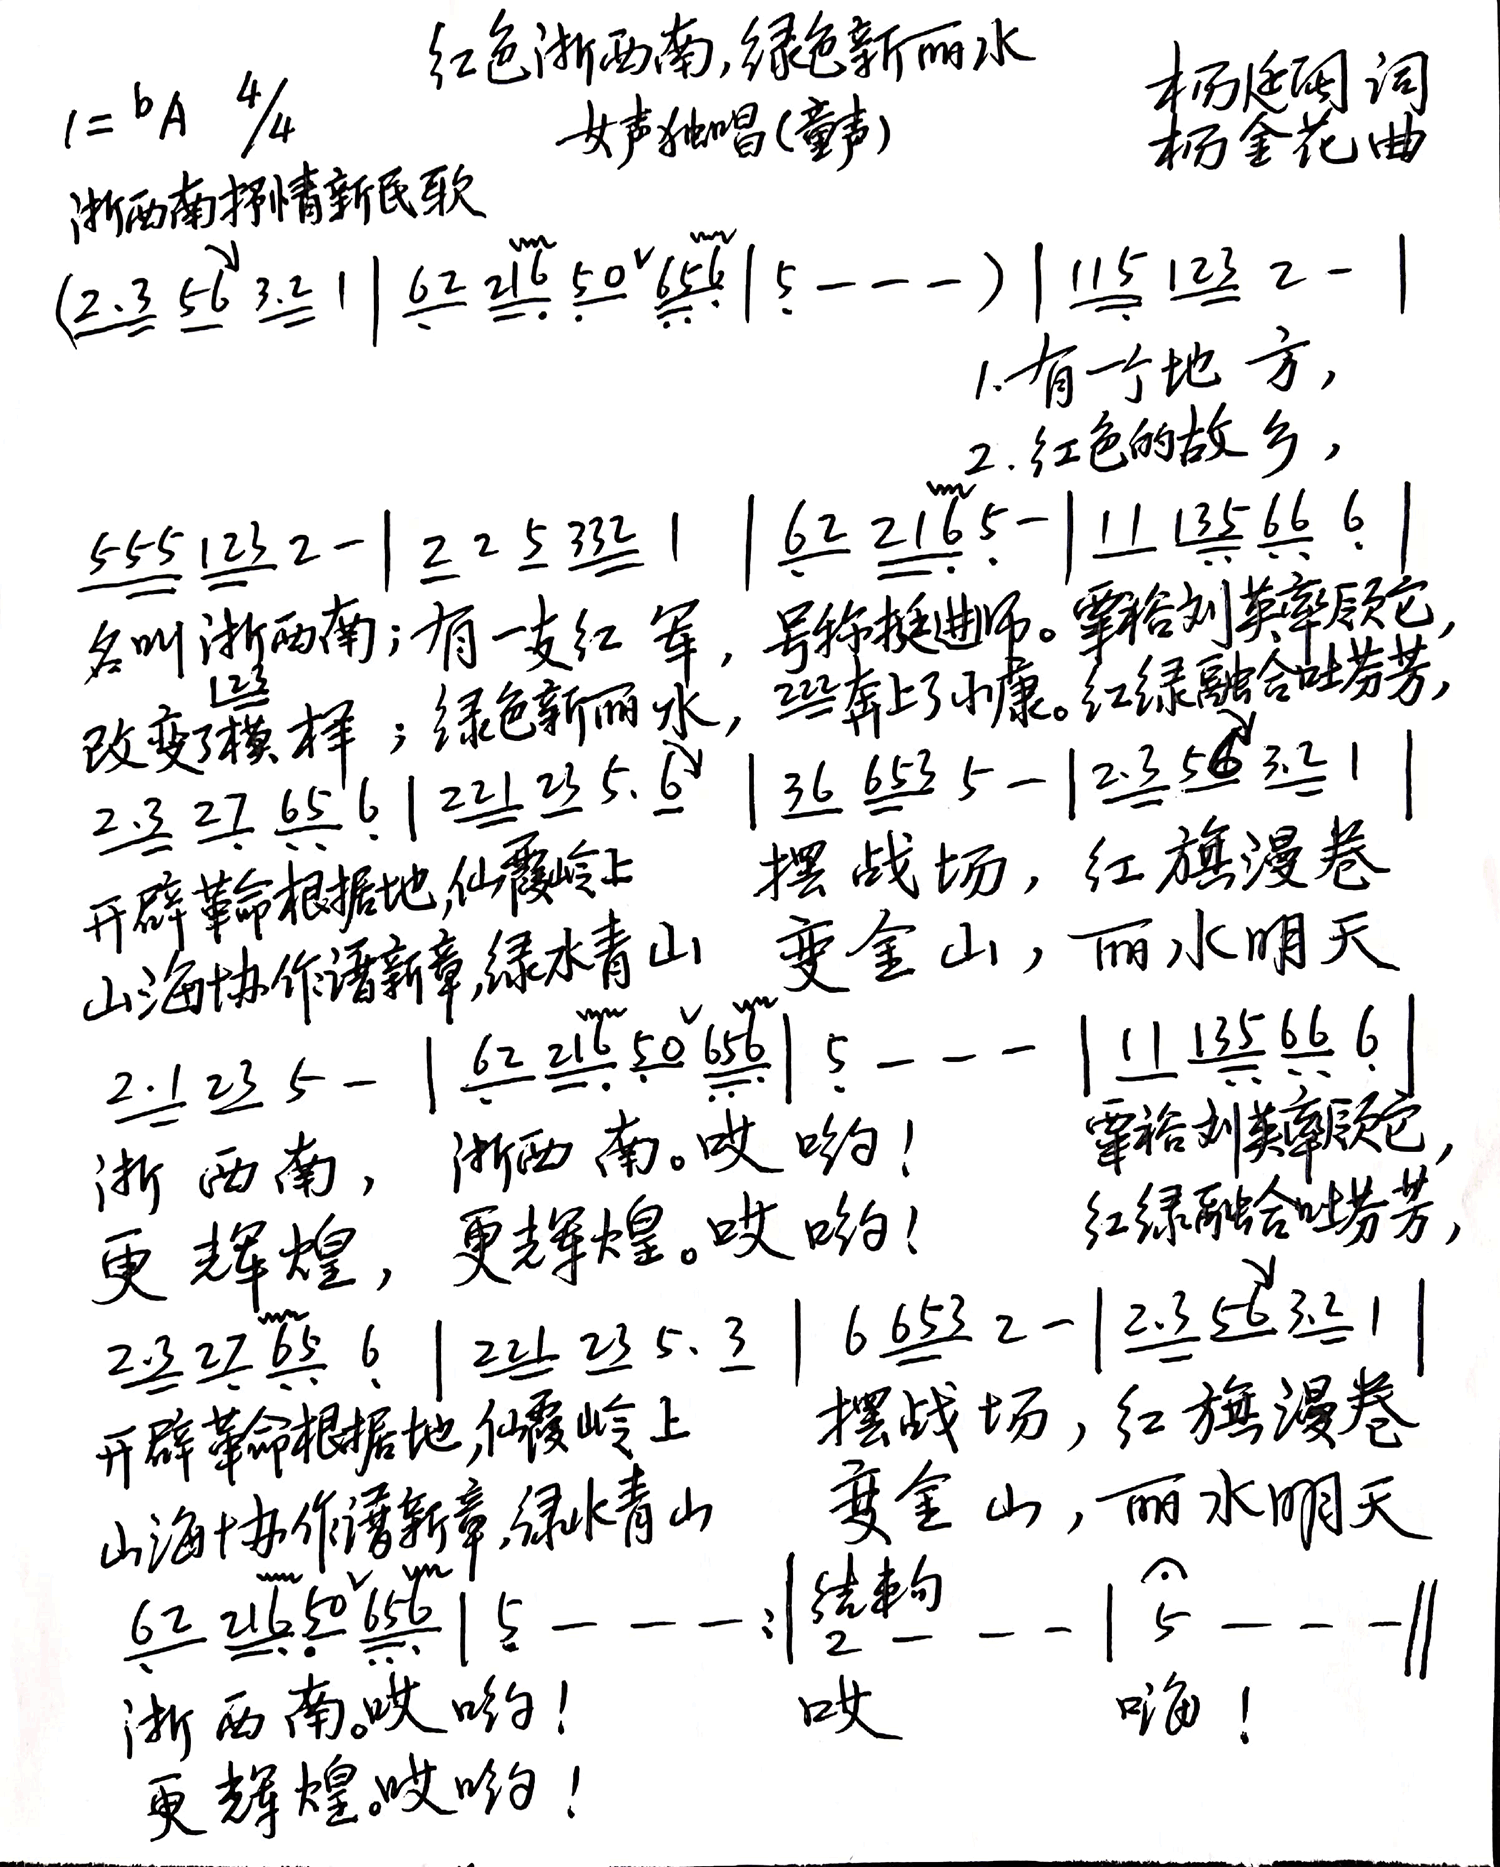 红色浙西南,绿色新丽水
1=bA 4/4 女声独唱(童声) 杨廷国 词
杨金花 曲
浙西南抒情新民歌
(2.3 56 3.2 1 | 62 216 50 656 | 5 - - - ) | 115 123 2 - |
1.有一个地方,
2.红色的故乡,
555 123 2 - | 2 2 5 332 1 | 62 216 5 - | 11 135 66 6 |
名叫浙西南;有一支红军,号称挺进师。粟裕刘英率领它,
123 222
改变了模样;绿色新丽水,奔上了小康。红绿融合吐芬芳,
2.3 27 65 6 | 221 23 5. 6 | 36 653 5 - | 2.3 56 3.2 1 |
开辟革命根据地,仙霞岭上 摆战场,红旗漫卷
山海协作谱新章,绿水青山 变金山,丽水明天
2.1 23 5 - | 62 216 50 656 | 5 - - - | 11 135 66 6 |
浙西南, 浙西南。哎哟! 粟裕刘英率领它,
更辉煌, 更辉煌。哎哟! 红绿融合吐芬芳,
2.3 27 65 6 | 221 23 5. 3 | 6 653 2 - | 2.3 56 3.2 1 |
开辟革命根据地,仙霞岭上 摆战场,红旗漫卷
山海协作谱新章,绿水青山 变金山,丽水明天
结束句
62 216 50 656 | 5 - - - :| 2 - - - | 5 - - - ||
浙西南。哎哟! 哎 嗨!
更辉煌。哎哟!